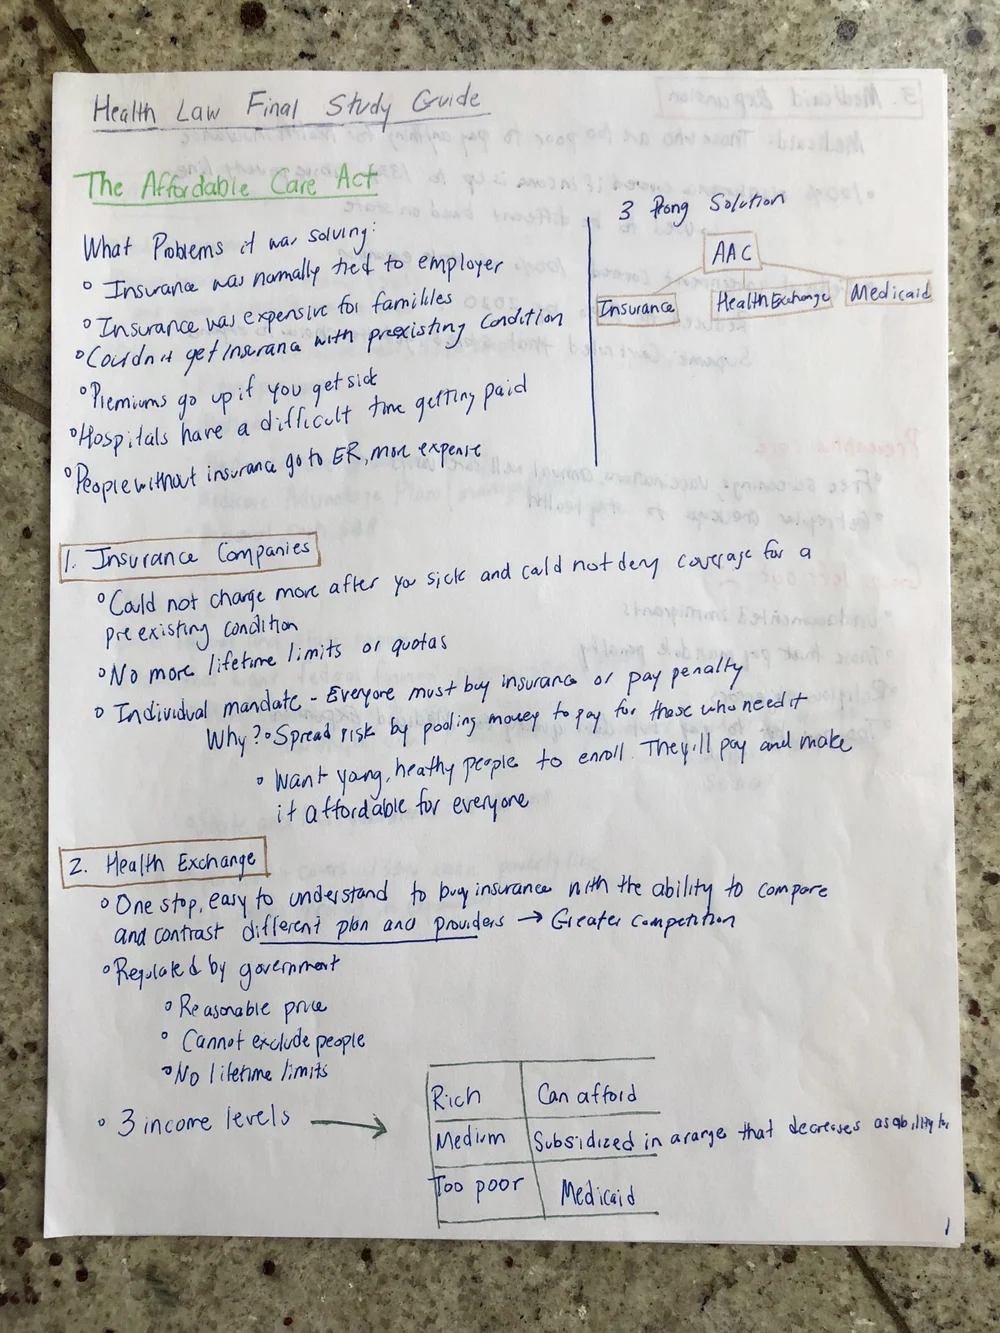 Health Law Final Study Guide
The Affordable Care Act
What Problems it was solving:
° Insurance was normally tied to employer
° Insurance was expensive for families
° Couldn't get Insurance with preexisting condition
° Premiums go up if you get sick
° Hospitals have a difficult time getting paid
° People without insurance go to ER, more expense
3 Prong Solution
AAC
Insurance Health Exchange Medicaid
1. Insurance Companies
° Could not charge more after you sick and could not deny coverage for a
pre existing condition
° No more lifetime limits or quotas
° Individual mandate - Everyone must buy insurance or pay penalty
Why? ° Spread risk by pooling money to pay for those who need it
° Want young, heathy people to enroll. They'll pay and make
it affordable for everyone
2. Health Exchange
° One stop, easy to understand to buy insurance with the ability to compare
and contrast different plan and providers → Greater competition
° Regulated by government
° Reasonable price
° Cannot exclude people
° No lifetime limits
° 3 income levels →
Rich Can afford
Medium Subsidized in a range that decreases as ability to
Too poor Medicaid
1